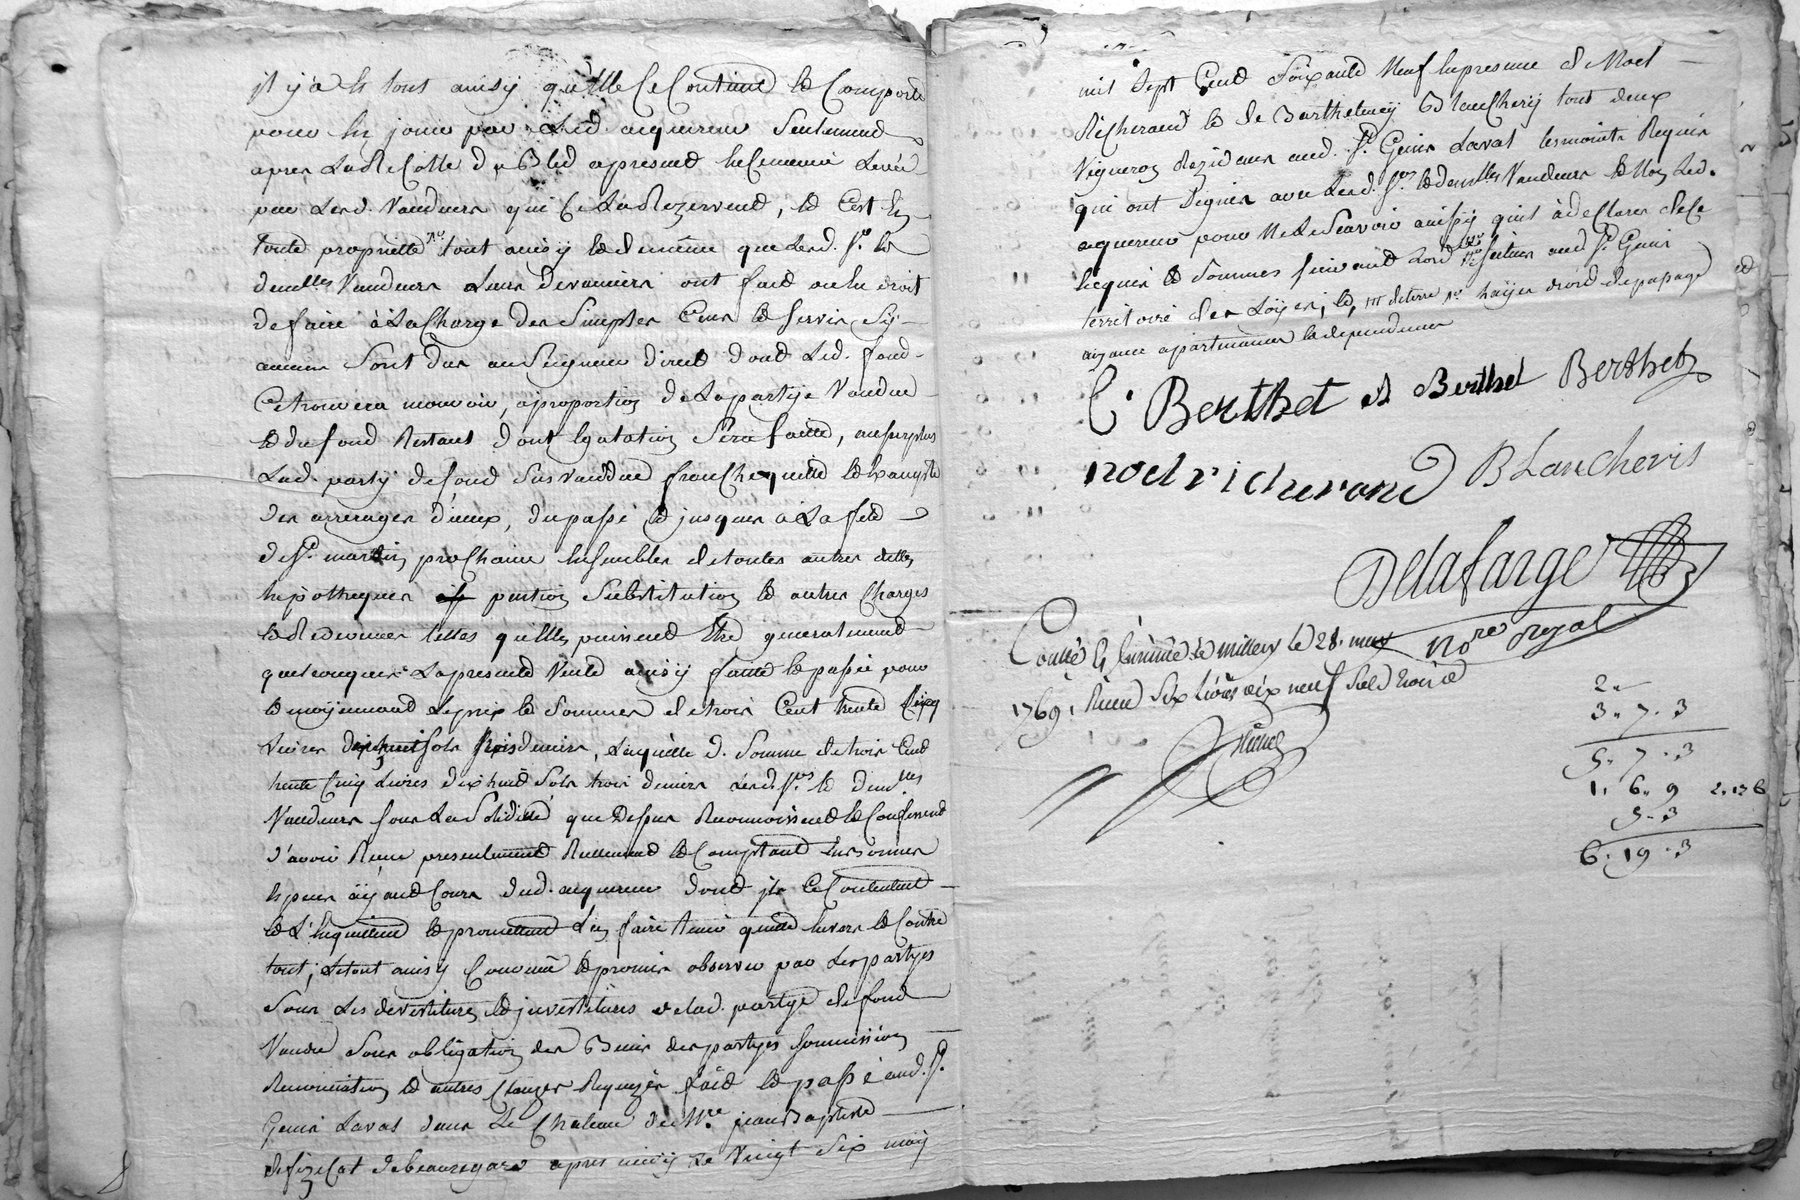 il y a et tout ainsy qu'elle ce Contient et Comporte
pour en jouir par led. acquereur seulement
apres La Recolte du Bled apresent ensemencé Levée
par Lesd. Vendeurs qui ce La Rezervent, et C'est en
toute proprietté tout ainsy et de meme que Lesd. Srs et
demelles Vendeurs Leurs Devanciers ont fait ou eu droit
de faire à La Charge des simples Cens et servis sy
aucuns sont dus au seigneur direct dont Led. fond
Ce trouvera mouvoir, a proportion de La partye Vendue
et du fond Restant dont egation sera faitte, au surplus
Lad. party de fond sus vendue franche quitte et exempte
des arrerages d'iceux, du passé et jusques a La fete
de St. martin prochaine ensembles de toutes autres dettes
hipotheques pention substitution et autres Charges
et Redevances telles qu'elles puissent etre generalement
quelconques La presente Vente ainsy faitte et passé pour
et moyennant Le prix et somme de trois Cent trente Cinq
Livres dixhuit sols trois deniers, Laquelle d. somme de trois Cent
trente Cinq Livres dixhuit sols trois deniers Lesd. Srs et demlles
Vendeurs sous La solidité que dessus Reconnoissent et Confessent
d'avoir Receu presentement Reellement et Comptant en bonnes
especes ayant Cours dud. acquereur dont ils Ce Contentent
et L'en quittent et promettent L'en faire tenir quitte envers et Contre
tout; Le tout ainsy Convenu et promis observer par Les partyes
sous Les devestitures et jnvestitures de lad. partye de fond
Vendu sous obligation des Biens des partyes soumission
Renonciation et autres Clauses Requises fait et passé aud. St.
Genis Laval dans Le Chateau de Mre. jean Baptiste
de fizicat de beauregard apres midy Le Vingt six may
mil sept Cent soixante Neuf en presence de Noel
Richerand et de Barthelemy Blanchery tout deux
Vignerons Rezidans aud. St. Genis Laval temoints Requis
qui ont signés avec Lesd. Srs. et demlles Vendeurs et Non Led.
aquereur pour Ne Le sçavoir ainsy qu'il à déclaré de Ce
Enquis et sommes suivant Lord. situés aud. St. Genis
territoire des Loyes, et, haÿes droit de passage
aizances apartenances et dependances
C. Berthet B Berthet Berthet
noel richerand Blancheris
Delafarge
Nore Royal
Controllé et insinué a millery le 28. may
1769. Receu six livres dix neuf sols trois d
2 "
3 " 7 . 3
5 . 7 . 3
1 . 6 . 9 2 . 13 6
5 . 3
6 . 19 . 3